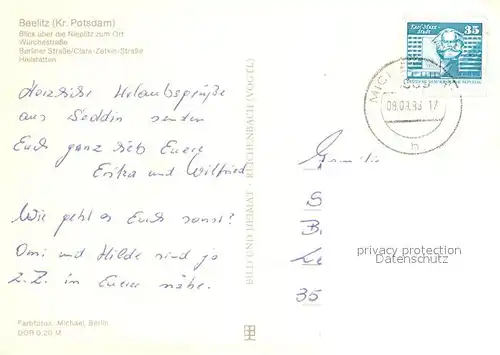 Beelitz (Kr. Potsdam)
Blick über die Nieplitz zum Ort
Würchestraße
Berliner Straße/Clara-Zetkin-Straße
Heilstätten
Herzliche Urlaubsgrüße
aus Seddin senden
Euch ganz lieb Euere
Erika und Wilfried
Wie geht es Euch sonst?
Omi und Hilde sind ja
z.Z. in Euerer nähe.
Farbfotos: Michael, Berlin
DDR 0,20 M
BILD UND HEIMAT · REICHENBACH (VOGTL)
Karl-Marx-
Stadt
35
DEUTSCHE DEMOKRATISCHE REPUBLIK
MICH
08.07.83 17
h
Familie
S
B.
Le
35
privacy protection
Datenschutz